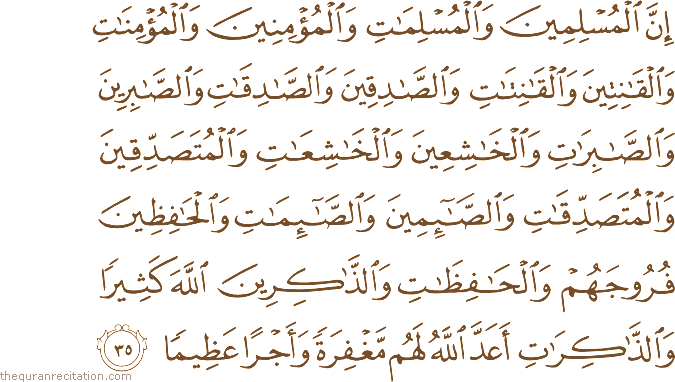 إِنَّ ٱلْمُسْلِمِينَ وَٱلْمُسْلِمَٰتِ وَٱلْمُؤْمِنِينَ وَٱلْمُؤْمِنَٰتِ
وَٱلْقَٰنِتِينَ وَٱلْقَٰنِتَٰتِ وَٱلصَّٰدِقِينَ وَٱلصَّٰدِقَٰتِ وَٱلصَّٰبِرِينَ
وَٱلصَّٰبِرَٰتِ وَٱلْخَٰشِعِينَ وَٱلْخَٰشِعَٰتِ وَٱلْمُتَصَدِّقِينَ
وَٱلْمُتَصَدِّقَٰتِ وَٱلصَّٰٓئِمِينَ وَٱلصَّٰٓئِمَٰتِ وَٱلْحَٰفِظِينَ
فُرُوجَهُمْ وَٱلْحَٰفِظَٰتِ وَٱلذَّٰكِرِينَ ٱللَّهَ كَثِيرًا
وَٱلذَّٰكِرَٰتِ أَعَدَّ ٱللَّهُ لَهُم مَّغْفِرَةً وَأَجْرًا عَظِيمًا ٣٥
thequranrecitation.com